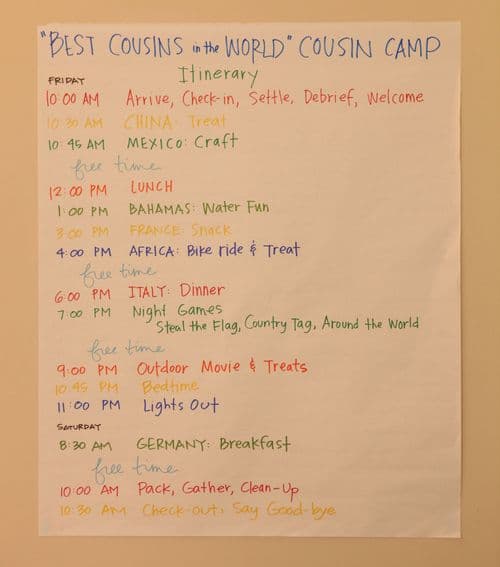 "BEST COUSINS in the WORLD" COUSIN CAMP
Itinerary
FRIDAY
10:00 AM Arrive, Check-in, Settle, Debrief, Welcome
10:30 AM CHINA: Treat
10:45 AM MEXICO: Craft
free time
12:00 PM LUNCH
1:00 PM BAHAMAS: Water Fun
3:00 PM FRANCE: Snack
4:00 PM AFRICA: Bike ride & Treat
free time
6:00 PM ITALY: Dinner
7:00 PM Night Games
Steal the Flag, Country Tag, Around the World
free time
9:00 PM Outdoor Movie & Treats
10:45 PM Bedtime
11:00 PM Lights Out
SATURDAY
8:30 AM GERMANY: Breakfast
free time
10:00 AM Pack, Gather, Clean-Up
10:30 AM Check-out, Say Good-bye